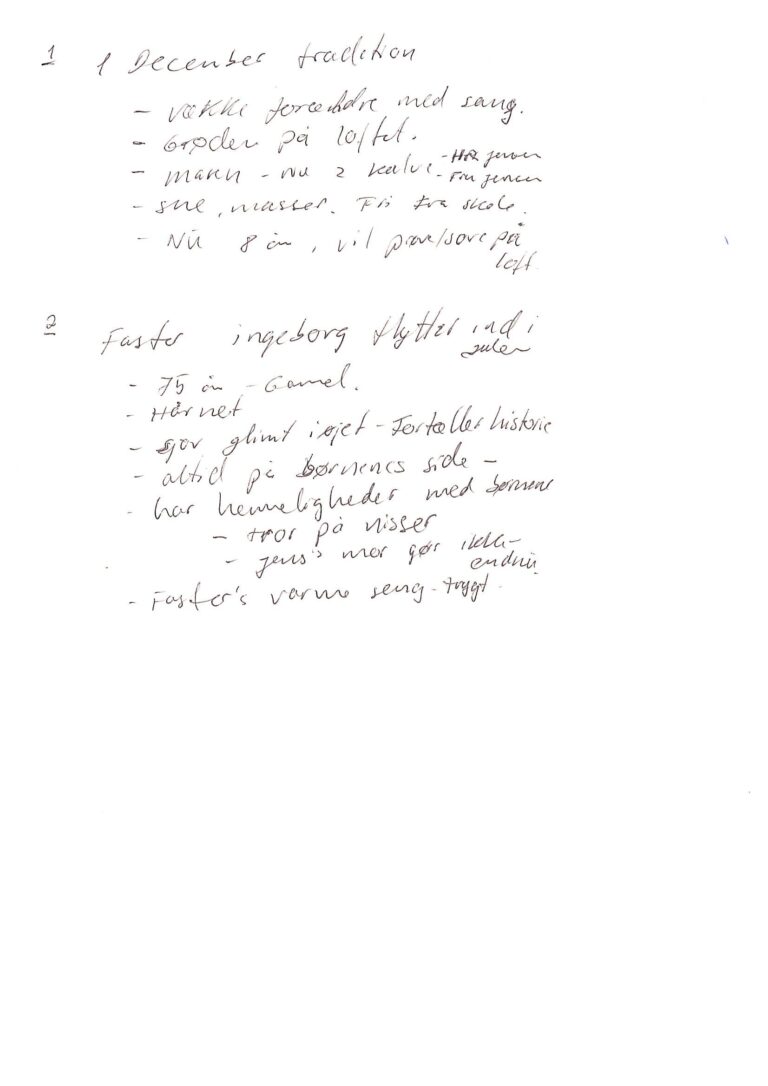 1 1 December tradition
- vække forældre med sang.
- Grøden på loftet.
- - nu 2 kalve - HR jensen
- Fru jensen
- sne, masser. Fri fra skole.
- Nu 8 år, vil prøve/sove på
loft.
2 Faster ingeborg flytter ind i
julen
- 75 år - Gamel.
- Hårnet
- sjov glimt i øjet - Fortæller historie
- altid på børnenes side -
- har hemmeligheder med børnene
- tror på nisser
- jens's mor gør ikke -
endnu.
- Faster's varme seng - trygt.